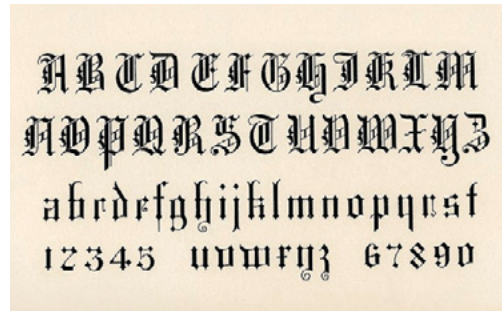 A B C D E F G H I K L M
N O P Q R S T U V W X Y Z
a b c d e f g h i j k l m n o p q r s t
1 2 3 4 5 u v w x y z 6 7 8 9 0